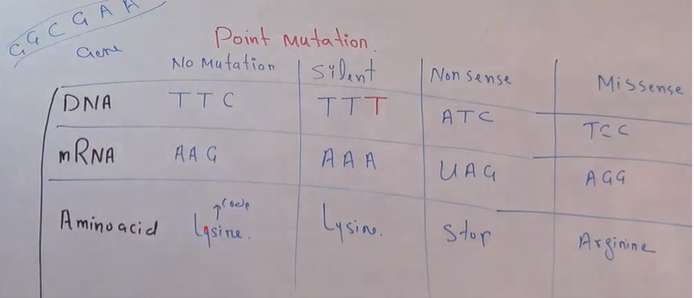 GGCGAA
Gene
Point Mutation.
No Mutation Silent Nonsense Missense
DNA TTC TTT ATC TCC
mRNA AAG AAA UAG AGG
code
Aminoacid Lysine. Lysine. Stop Arginine